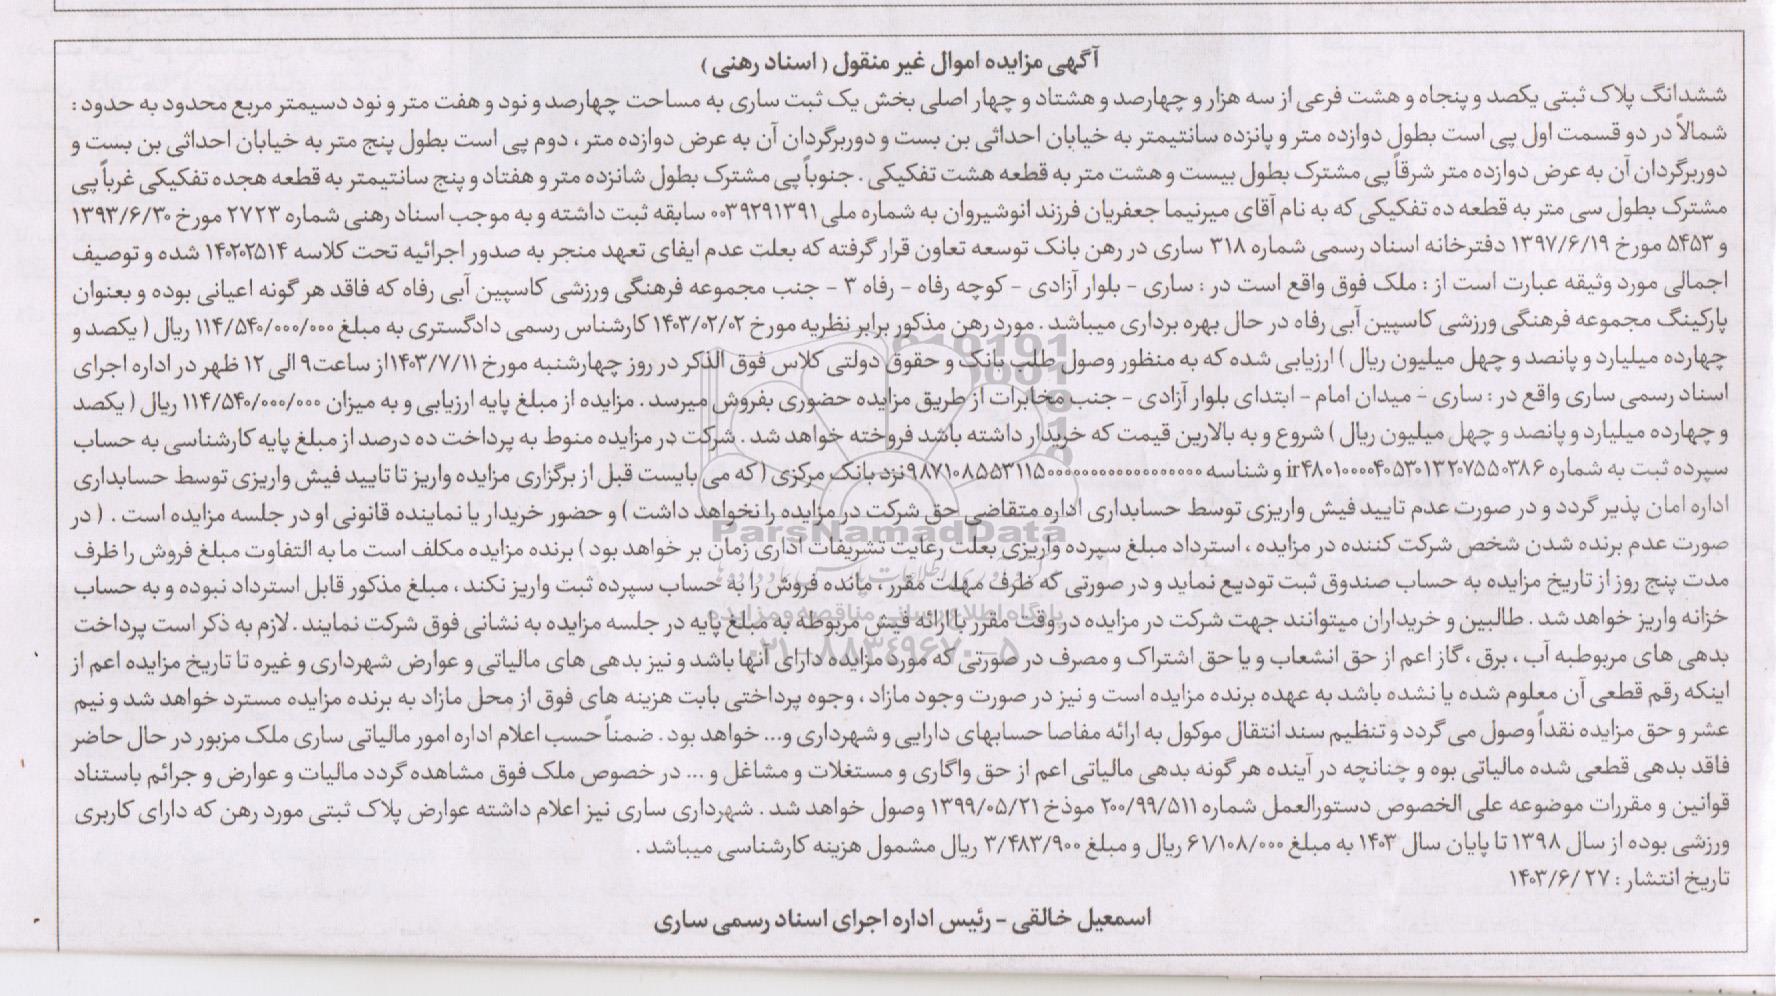 آگهی مزایده اموال غیر منقول ( اسناد رهنی )
ششدانگ پلاک ثبتی یکصد و پنجاه و هشت فرعی از سه هزار و چهارصد و هشتاد و چهار اصلی بخش یک ثبت ساری به مساحت چهارصد و نود و هفت متر و نود دسیمتر مربع محدود به حدود :
شمالاً در دو قسمت اول پی است بطول دوازده متر و پانزده سانتیمتر به خیابان احداثی بن بست و دوربرگردان آن به عرض دوازده متر ، دوم پی است بطول پنج متر به خیابان احداثی بن بست و
دوربرگردان آن به عرض دوازده متر شرقاً پی مشترک بطول بیست و هشت متر به قطعه هشت تفکیکی . جنوباً پی مشترک بطول شانزده متر و هفتاد و پنج سانتیمتر به قطعه هجده تفکیکی غرباً پی
مشترک بطول سی متر به قطعه ده تفکیکی که به نام آقای میرنیما جعفریان فرزند انوشیروان به شماره ملی ۰۰۳۹۲۹۱۳۹۱ سابقه ثبت داشته و به موجب اسناد رهنی شماره ۲۷۲۳ مورخ ۱۳۹۳/۶/۳۰
و ۵۴۵۳ مورخ ۱۳۹۷/۶/۱۹ دفترخانه اسناد رسمی شماره ۳۱۸ ساری در رهن بانک توسعه تعاون قرار گرفته که بعلت عدم ایفای تعهد منجر به صدور اجرائیه تحت کلاسه ۱۴۰۲۰۲۵۱۴ شده و توصیف
اجمالی مورد وثیقه عبارت است از : ملک فوق واقع است در : ساری - بلوار آزادی - کوچه رفاه - رفاه ۳ - جنب مجموعه فرهنگی ورزشی کاسپین آبی رفاه که فاقد هر گونه اعیانی بوده و بعنوان
پارکینگ مجموعه فرهنگی ورزشی کاسپین آبی رفاه در حال بهره برداری میباشد . مورد رهن مذکور برابر نظریه مورخ ۱۴۰۳/۰۲/۰۲ کارشناس رسمی دادگستری به مبلغ ۱۱۴/۵۴۰/۰۰۰/۰۰۰ ریال ( یکصد و
چهارده میلیارد و پانصد و چهل میلیون ریال ) ارزیابی شده که به منظور وصول طلب بانک و حقوق دولتی کلاس فوق الذکر در روز چهارشنبه مورخ ۱۴۰۳/۷/۱۱از ساعت۹ الی ۱۲ ظهر در اداره اجرای
اسناد رسمی ساری واقع در : ساری - میدان امام - ابتدای بلوار آزادی - جنب مخابرات از طریق مزایده حضوری بفروش میرسد . مزایده از مبلغ پایه ارزیابی و به میزان ۱۱۴/۵۴۰/۰۰۰/۰۰۰ ریال ( یکصد
و چهارده میلیارد و پانصد و چهل میلیون ریال ) شروع و به بالارین قیمت که خریدار داشته باشد فروخته خواهد شد . شرکت در مزایده منوط به پرداخت ده درصد از مبلغ پایه کارشناسی به حساب
سپرده ثبت به شماره ir۴۸۰۱۰۰۰۰۴۰۵۳۰۱۳۲۰۷۵۵۰۳۸۶ و شناسه نزد بانک مرکزی ( که می بایست قبل از برگزاری مزایده واریز تا تایید فیش واریزی توسط حسابداری
اداره امان پذیر گردد و در صورت عدم تایید فیش واریزی توسط حسابداری اداره متقاضی حق شرکت در مزایده را نخواهد داشت ) و حضور خریدار یا نماینده قانونی او در جلسه مزایده است . ( در
صورت عدم برنده شدن شخص شرکت کننده در مزایده ، استرداد مبلغ سپرده واریزی بعلت رعایت تشریفات اداری زمان بر خواهد بود ) برنده مزایده مکلف است ما به التفاوت مبلغ فروش را ظرف
مدت پنج روز از تاریخ مزایده به حساب صندوق ثبت تودیع نماید و در صورتی که ظرف مهلت مقرر ، مانده فروش را به حساب سپرده ثبت واریز نکند ، مبلغ مذکور قابل استرداد نبوده و به حساب
خزانه واریز خواهد شد . طالبین و خریداران میتوانند جهت شرکت در مزایده در وقت مقرر با ارائه فیش مربوطه به مبلغ پایه در جلسه مزایده به نشانی فوق شرکت نمایند . لازم به ذکر است پرداخت
بدهی های مربوطبه آب ، برق ، گاز اعم از حق انشعاب و یا حق اشتراک و مصرف در صورتی که مورد مزایده دارای آنها باشد و نیز بدهی های مالیاتی و عوارض شهرداری و غیره تا تاریخ مزایده اعم از
اینکه رقم قطعی آن معلوم شده یا نشده باشد به عهده برنده مزایده است و نیز در صورت وجود مازاد ، وجوه پرداختی بابت هزینه های فوق از محل مازاد به برنده مزایده مسترد خواهد شد و نیم
عشر و حق مزایده نقداً وصول می گردد و تنظیم سند انتقال موکول به ارائه مفاصا حسابهای دارایی و شهرداری و... خواهد بود . ضمناً حسب اعلام اداره امور مالیاتی ساری ملک مزبور در حال حاضر
فاقد بدهی قطعی شده مالیاتی بوه و چنانچه در آینده هر گونه بدهی مالیاتی اعم از حق واگاری و مستغلات و مشاغل و ... در خصوص ملک فوق مشاهده گردد مالیات و عوارض و جرائم باستناد
قوانین و مقررات موضوعه علی الخصوص دستورالعمل شماره ۲۰۰/۹۹/۵۱۱ موذخ ۱۳۹۹/۰۵/۲۱ وصول خواهد شد . شهرداری ساری نیز اعلام داشته عوارض پلاک ثبتی مورد رهن که دارای کاربری
ورزشی بوده از سال ۱۳۹۸ تا پایان سال ۱۴۰۳ به مبلغ ۶۱/۱۰۸/۰۰۰ ریال و مبلغ ۳/۴۸۳/۹۰۰ ریال مشمول هزینه کارشناسی میباشد .
تاریخ انتشار : ۱۴۰۳/۶/۲۷
اسمعیل خالقی - رئیس اداره اجرای اسناد رسمی ساری
ParsNamadData
پایگاه اطلاع رسانی مناقصه و مزایده
۰۲۱-۸۸۳۴۹۶۷۰-۵